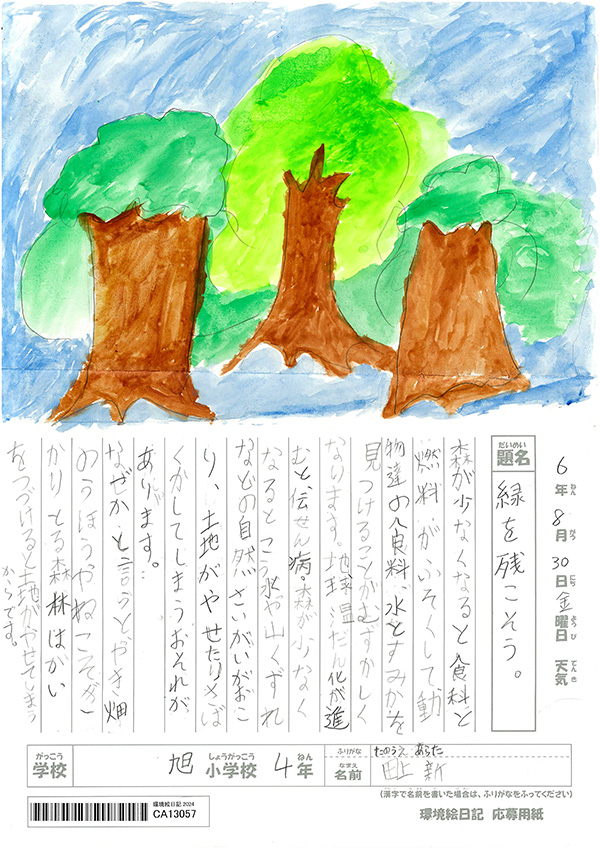 6年ねん 8月がつ 30日にち 金曜日ようび 天気てんき
だいめい
題名
緑を残こそう。
森が少なくなると食料と
燃料がふそくして動
物達の食料、水とすみかを
見つけることがむずかしく
なります。地球温だん化が進
むと、伝せん病。森が少なく
なるとこう水や山くずれ
などの自然さいがいがおこ
り、土地がやせたりさば
くかしてしまうおそれが
あります。
なぜかと言うとやき畑
のうほうやねこそぎ
かりとる森林はがい
をつづけると土地がやせてしまう
からです。
がっこう
学校
旭 しょうがっこう小学校 4年ねん
ふりがな
たのうえ あらた
なまえ
名前
田上 新
(漢字で名前を書いた場合は、ふりがなをふってください)
環境絵日記 2024
CA13057
環境絵日記 応募用紙